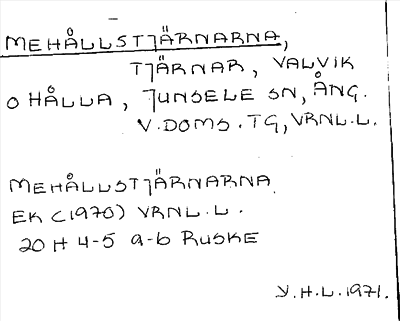 MEHÅLLSTJÄRNARNA,
TJÄRNAR, VALVIK
O HÅLLA, JUNSELE SN, ÅNG.
V. DOMS. TG, VRNL.L.
MEHÅLLSTJÄRNARNA
EK (1970) VRNL.L.
20 H 4-5 a-b RUSKE
Y.H.L. 1971.